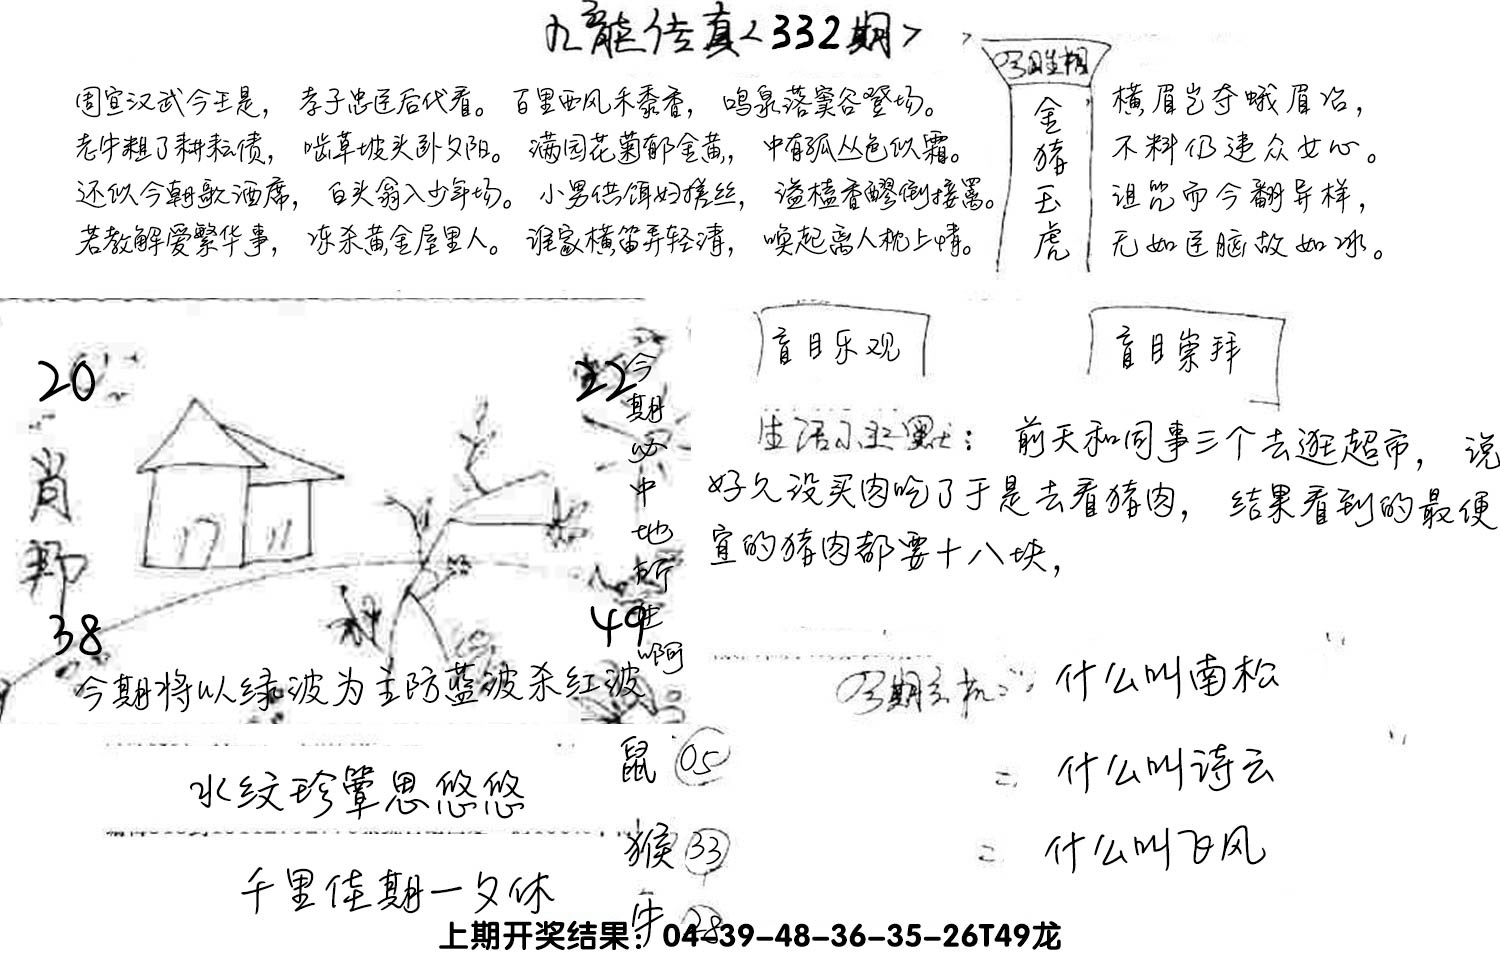 九龍传真<332期>
周宣汉武今王是， 孝子忠臣后代看。 百里西风禾黍香， 鸣泉落窦谷登场。
老牛粗了耕耘债， 啮草坡头卧夕阳。 满园花菊郁金黄， 中有孤丛色似霜。
还似今朝歌酒席， 白头翁入少年场。 小男供饵妇搓丝， 溢榼香醪倒接䍦。
若教解爱繁华事， 冻杀黄金屋里人。 谁家横笛弄轻清， 唤起离人枕上情。
今期生相
金猪玉虎
横眉岂夺蛾眉冶，
不料仍违众女心。
诅咒而今翻异样，
无如臣脑故如冰。
20
22
肖
38
49
今期必中地所生啊
今期将以绿波为主防蓝波杀红波
盲目乐观
盲目崇拜
生活小幽默：前天和同事三个去逛超市， 说
好久没买肉吃了于是去看猪肉， 结果看到的最便
宜的猪肉都要十八块，
今期玄机：什么叫南松
= 什么叫诗云
= 什么叫飞风
水纹珍簟思悠悠
千里佳期一夕休
鼠 05
猴 33
牛 28
上期开奖结果：04-39-48-36-35-26T49龙